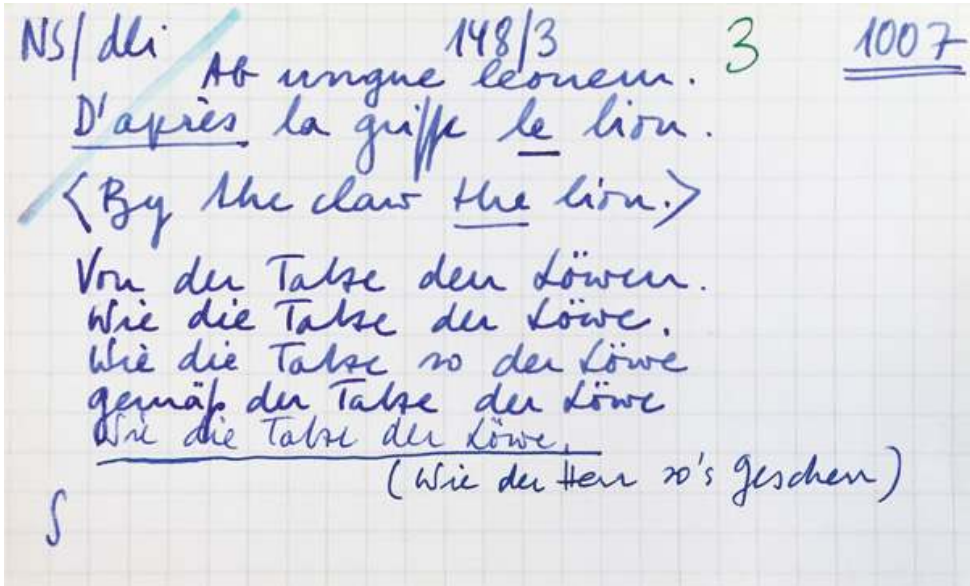 NS/dli 148/3 3 1007
Ab ungue leonem.
D'après la griffe le lion.
<By the claw the lion.>
Von der Tatze den Löwen.
Wie die Tatze der Löwe.
Wie die Tatze so der Löwe
gemäß der Tatze der Löwe
Wie die Tatze der Löwe.
(Wie der Herr so's Gescherr)